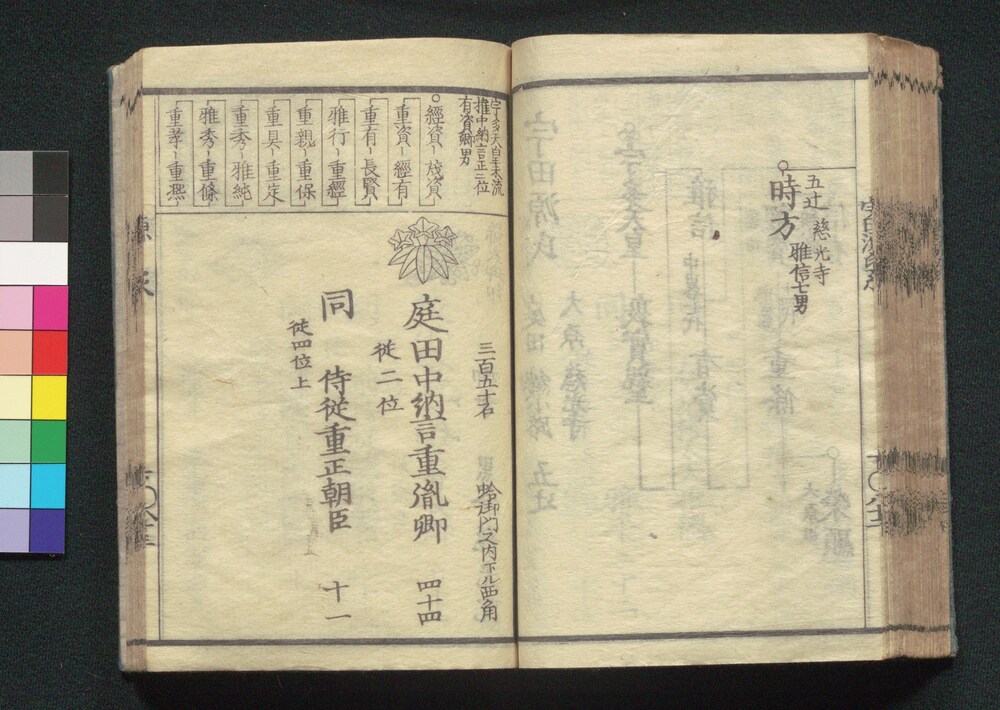 五辻 慈光寺
時方 雅信七男
宇多天皇末流
権中納言正三位
有資卿男
経資 茂賢
重資 経有
重有 長賢
雅行 重經
重親 重保
重具 重定
重秀 雅純
雅秀 重條
重孝 重熈
三百五十石 蛤御門之内下ル西角
庭田中納言重胤卿 四十四
従二位
同 侍従重正朝臣 十一
従四位上